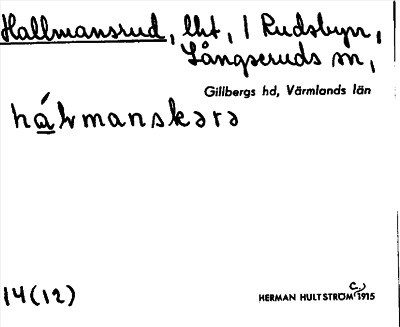 Hallmansrud, lht, i Rudsbyn,
Långseruds sn,
Gillbergs hd, Värmlands län
14(12)
HERMAN HULTSTRÖM C. 1915